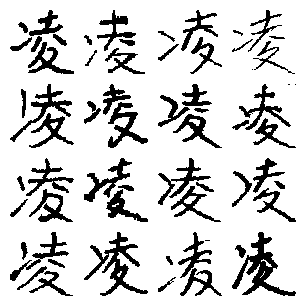 凌凌凌凌
凌凌凌凌
凌凌凌凌
凌凌凌凌